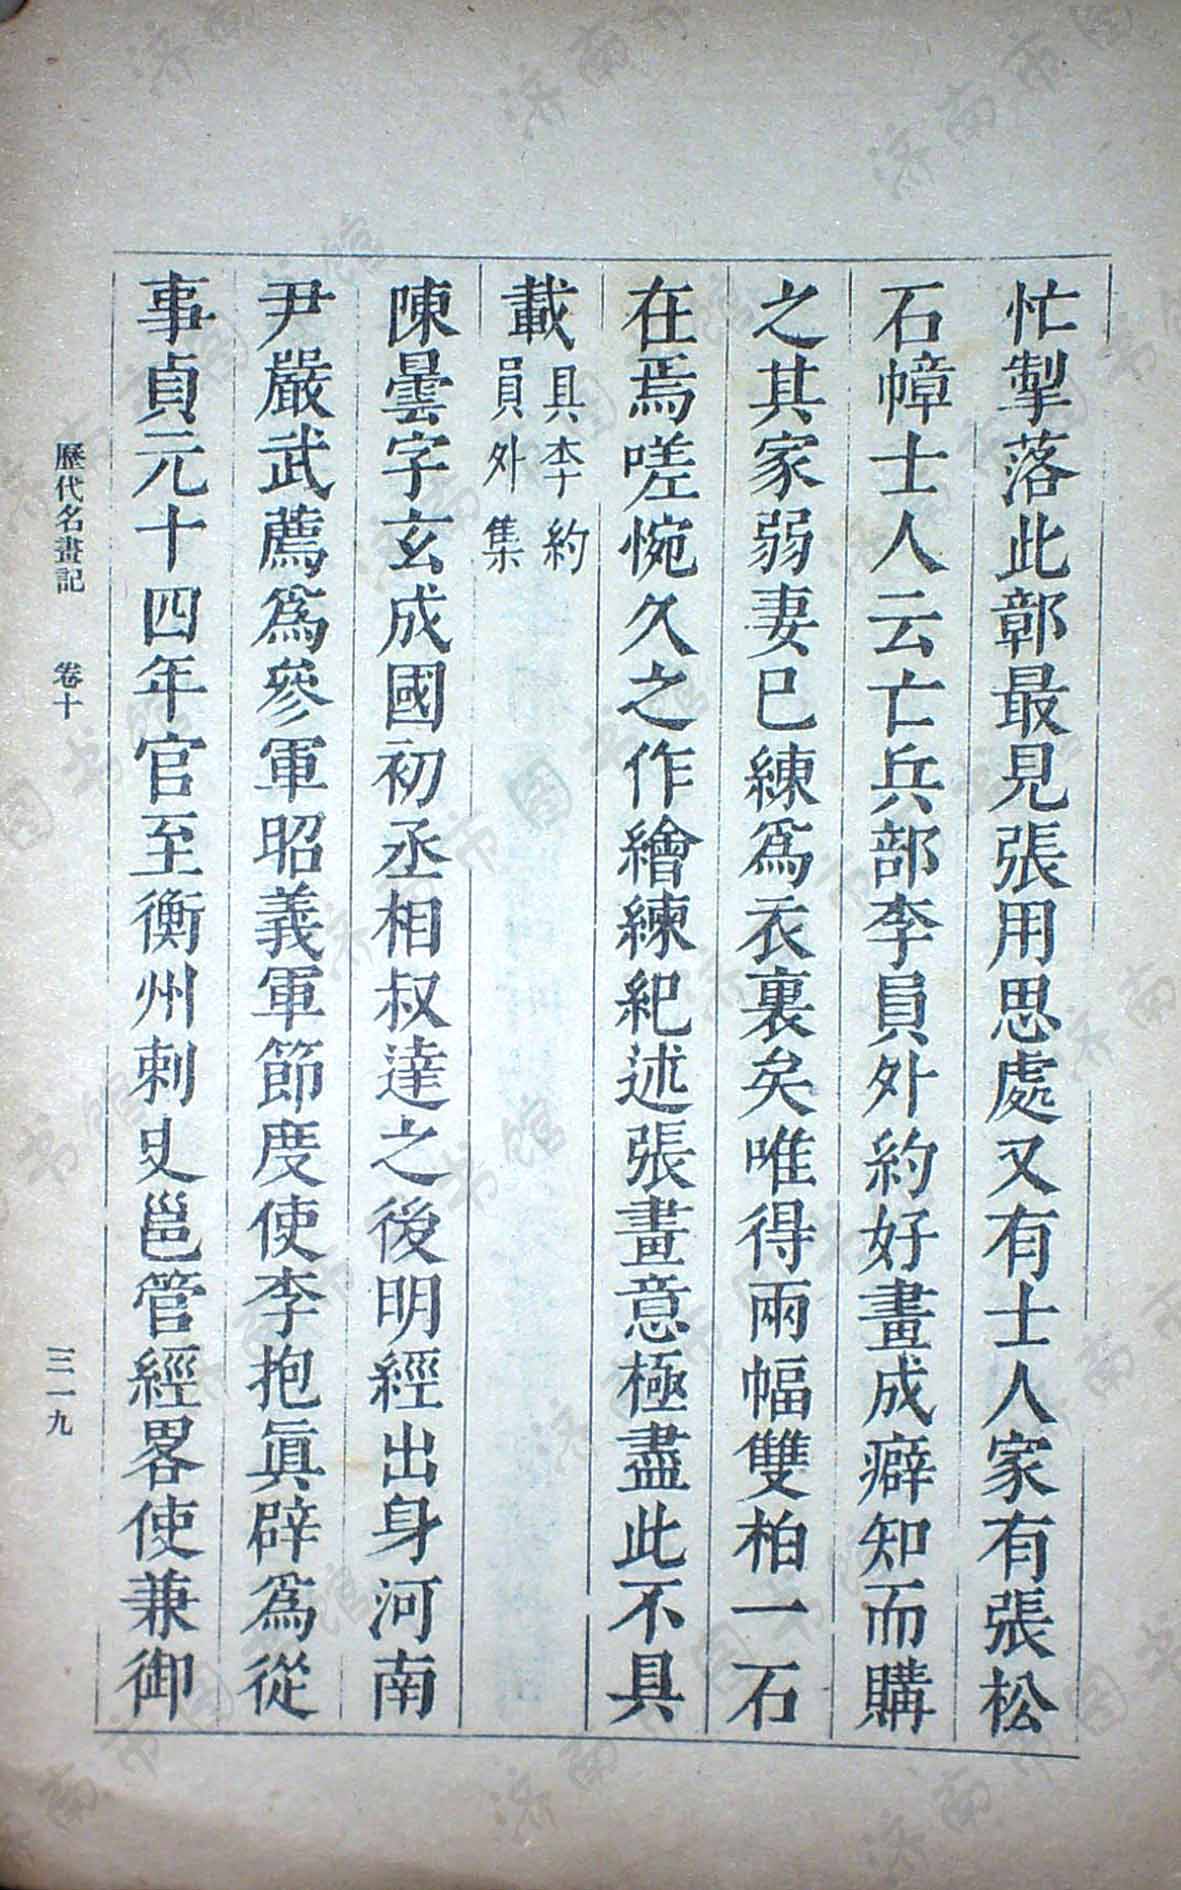 忙掣落此鄣最見張用思處又有士人家有張松
石幛士人云亡兵部李員外約好畫成癖知而購
之其家弱妻已練爲衣裏矣唯得兩幅雙柏一石
在焉嗟惋久之作繪練紀述張畫意極盡此不具
載
具李約
員外集
陳曇字玄成國初丞相叔達之後明經出身河南
尹嚴武薦爲參軍昭義軍節度使李抱眞辟爲從
事貞元十四年官至衡州刺史邕管經畧使兼御
歷代名畫記 卷十 三一九
濟南市图书馆